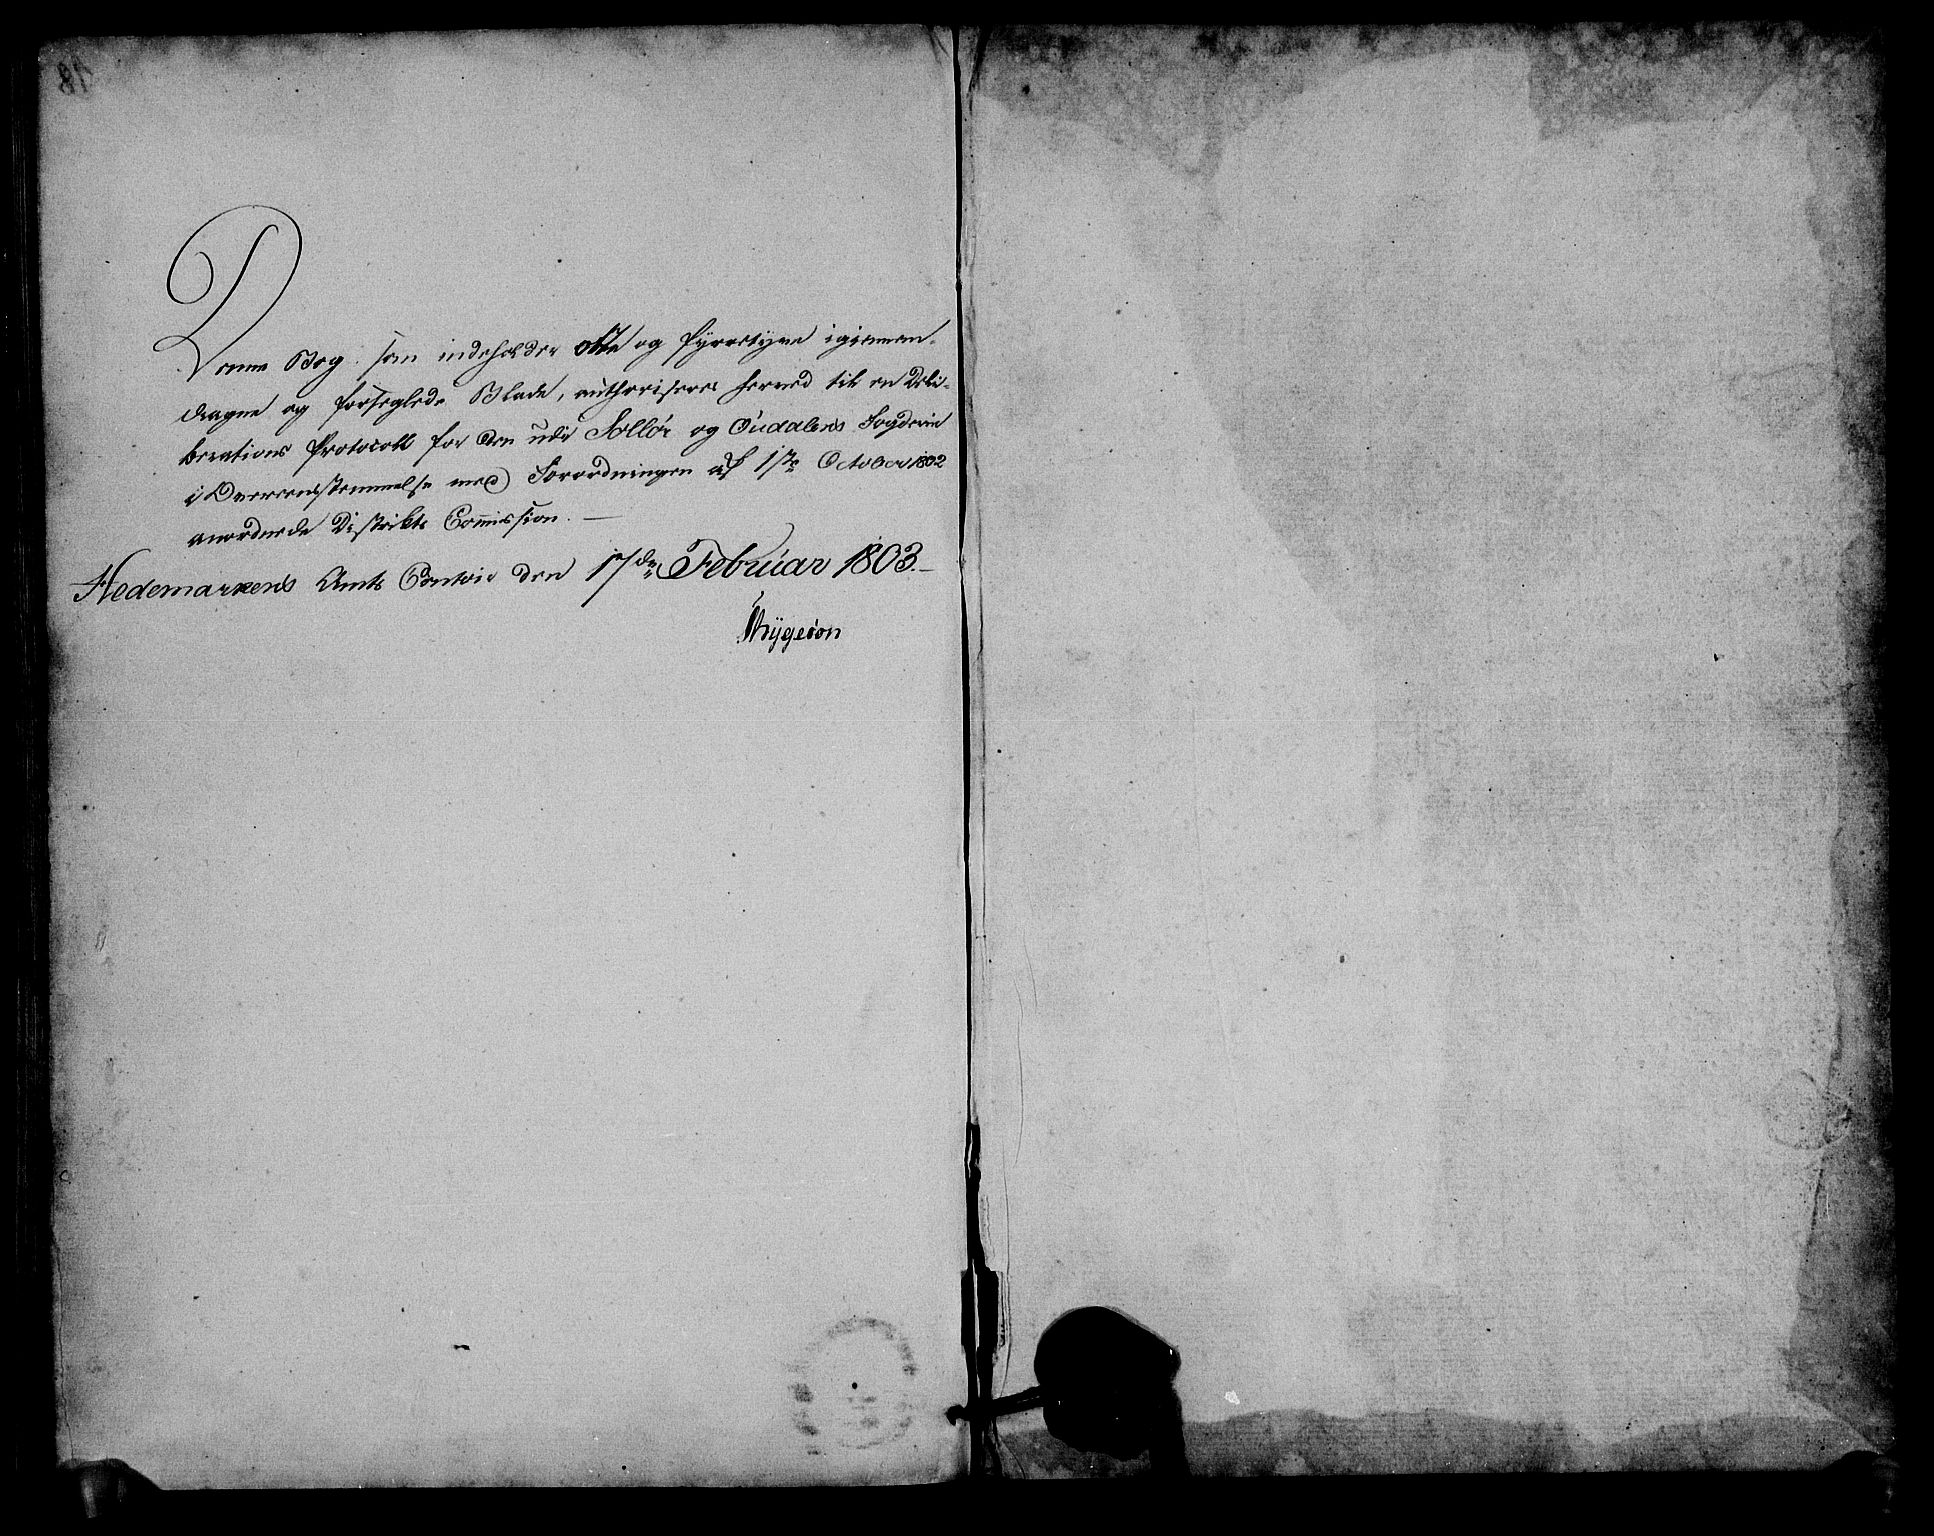 Denne Bog, som indeholder otte og fyrretyve igiennem-
dragne og forseglede Blade, authoriseres herved til en Deli-
berations Protocoll for den udi Solløer og Oudalens Fogderie
i Overeensstemmelse med Forordningen af 1ste October 1802
anordnede Distrikts Commission. —
Hedemarkens Amts Contoir den 17de Februar 1803. —
Thygeson